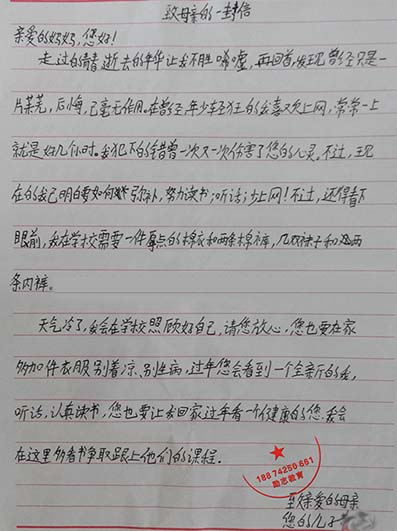 致母亲的一封信
亲爱的妈妈，您好！
走过的青春逝去的年华让我不胜唏嘘，再回首发现曾经只是一
片荒芜，后悔，已毫无作用。在曾经，年少轻狂的我喜欢上网，常常一上
就是好几小时。我犯下的错曾一次又一次伤害了您的心灵。不过，现
在的我已明白要如何弥补，努力读书；听话；少上网！不过，还得看下
眼前，我在学校需要一件厚点的棉衣和两条棉裤，几双袜子和两
条内裤。
天气冷了，我会在学校照顾好自己，请您放心，您也要在家
多加件衣服别着凉、别生病，过年您会看到一个全新的我，
听话，认真读书，您也要让我回家过年看一个健康的您。我会
在这里多看书争取跟上他们的课程。
188 74250 661
励志教育
至亲爱的母亲
您的儿子